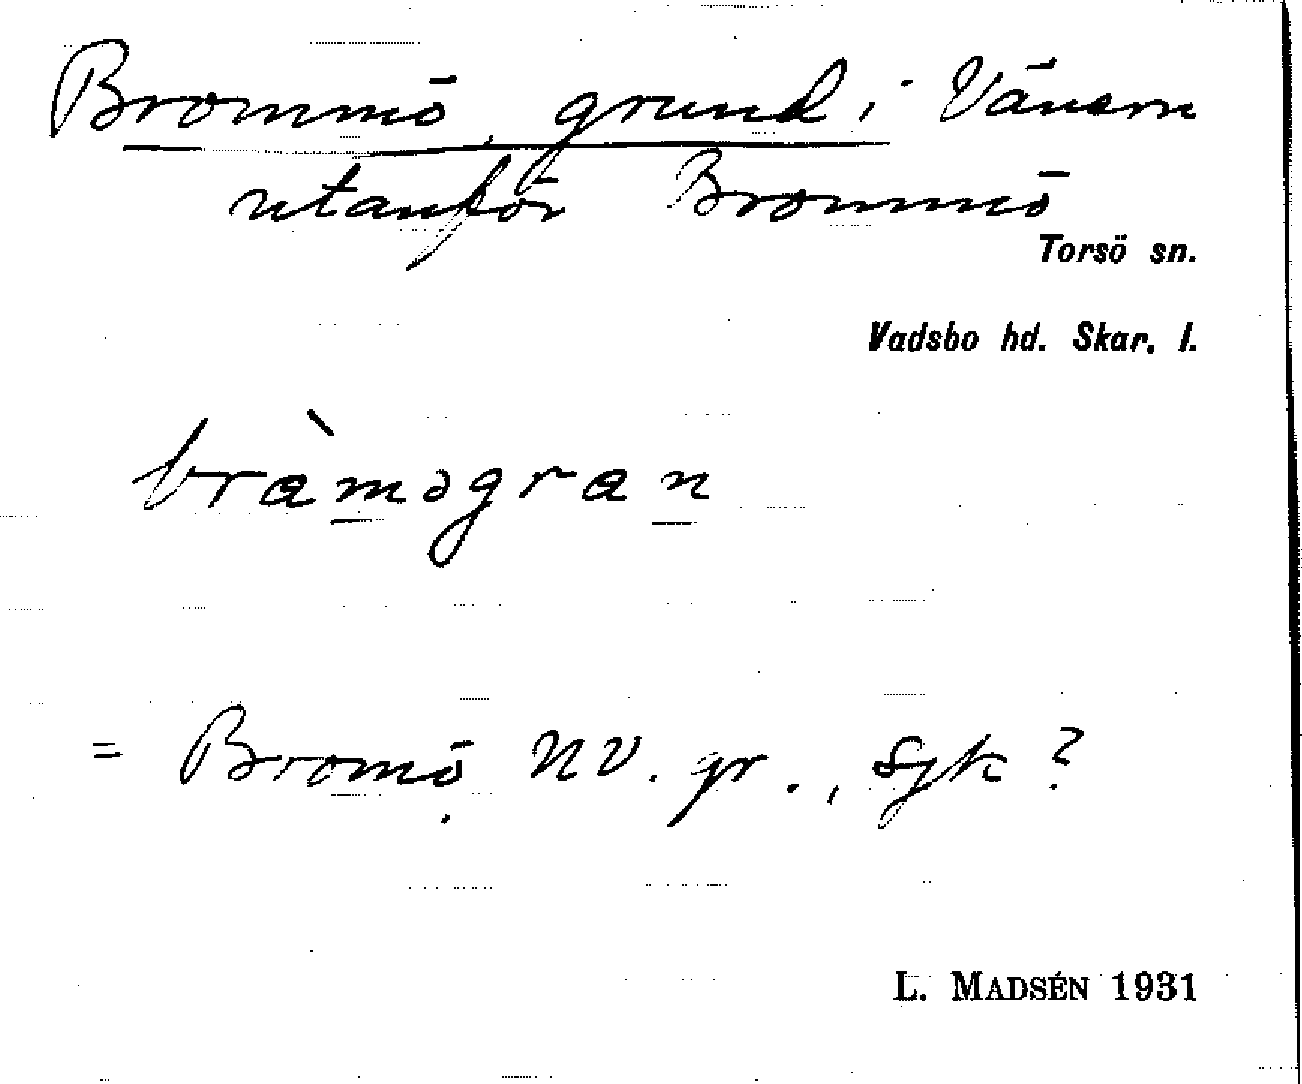 Brommö, grund i Vänern
utanför Brommö
Torsö sn.
Vadsbo hd. Skar. l.
bràməgran
= Bromö NV. gr., sjk?
L. MADSÉN 1931